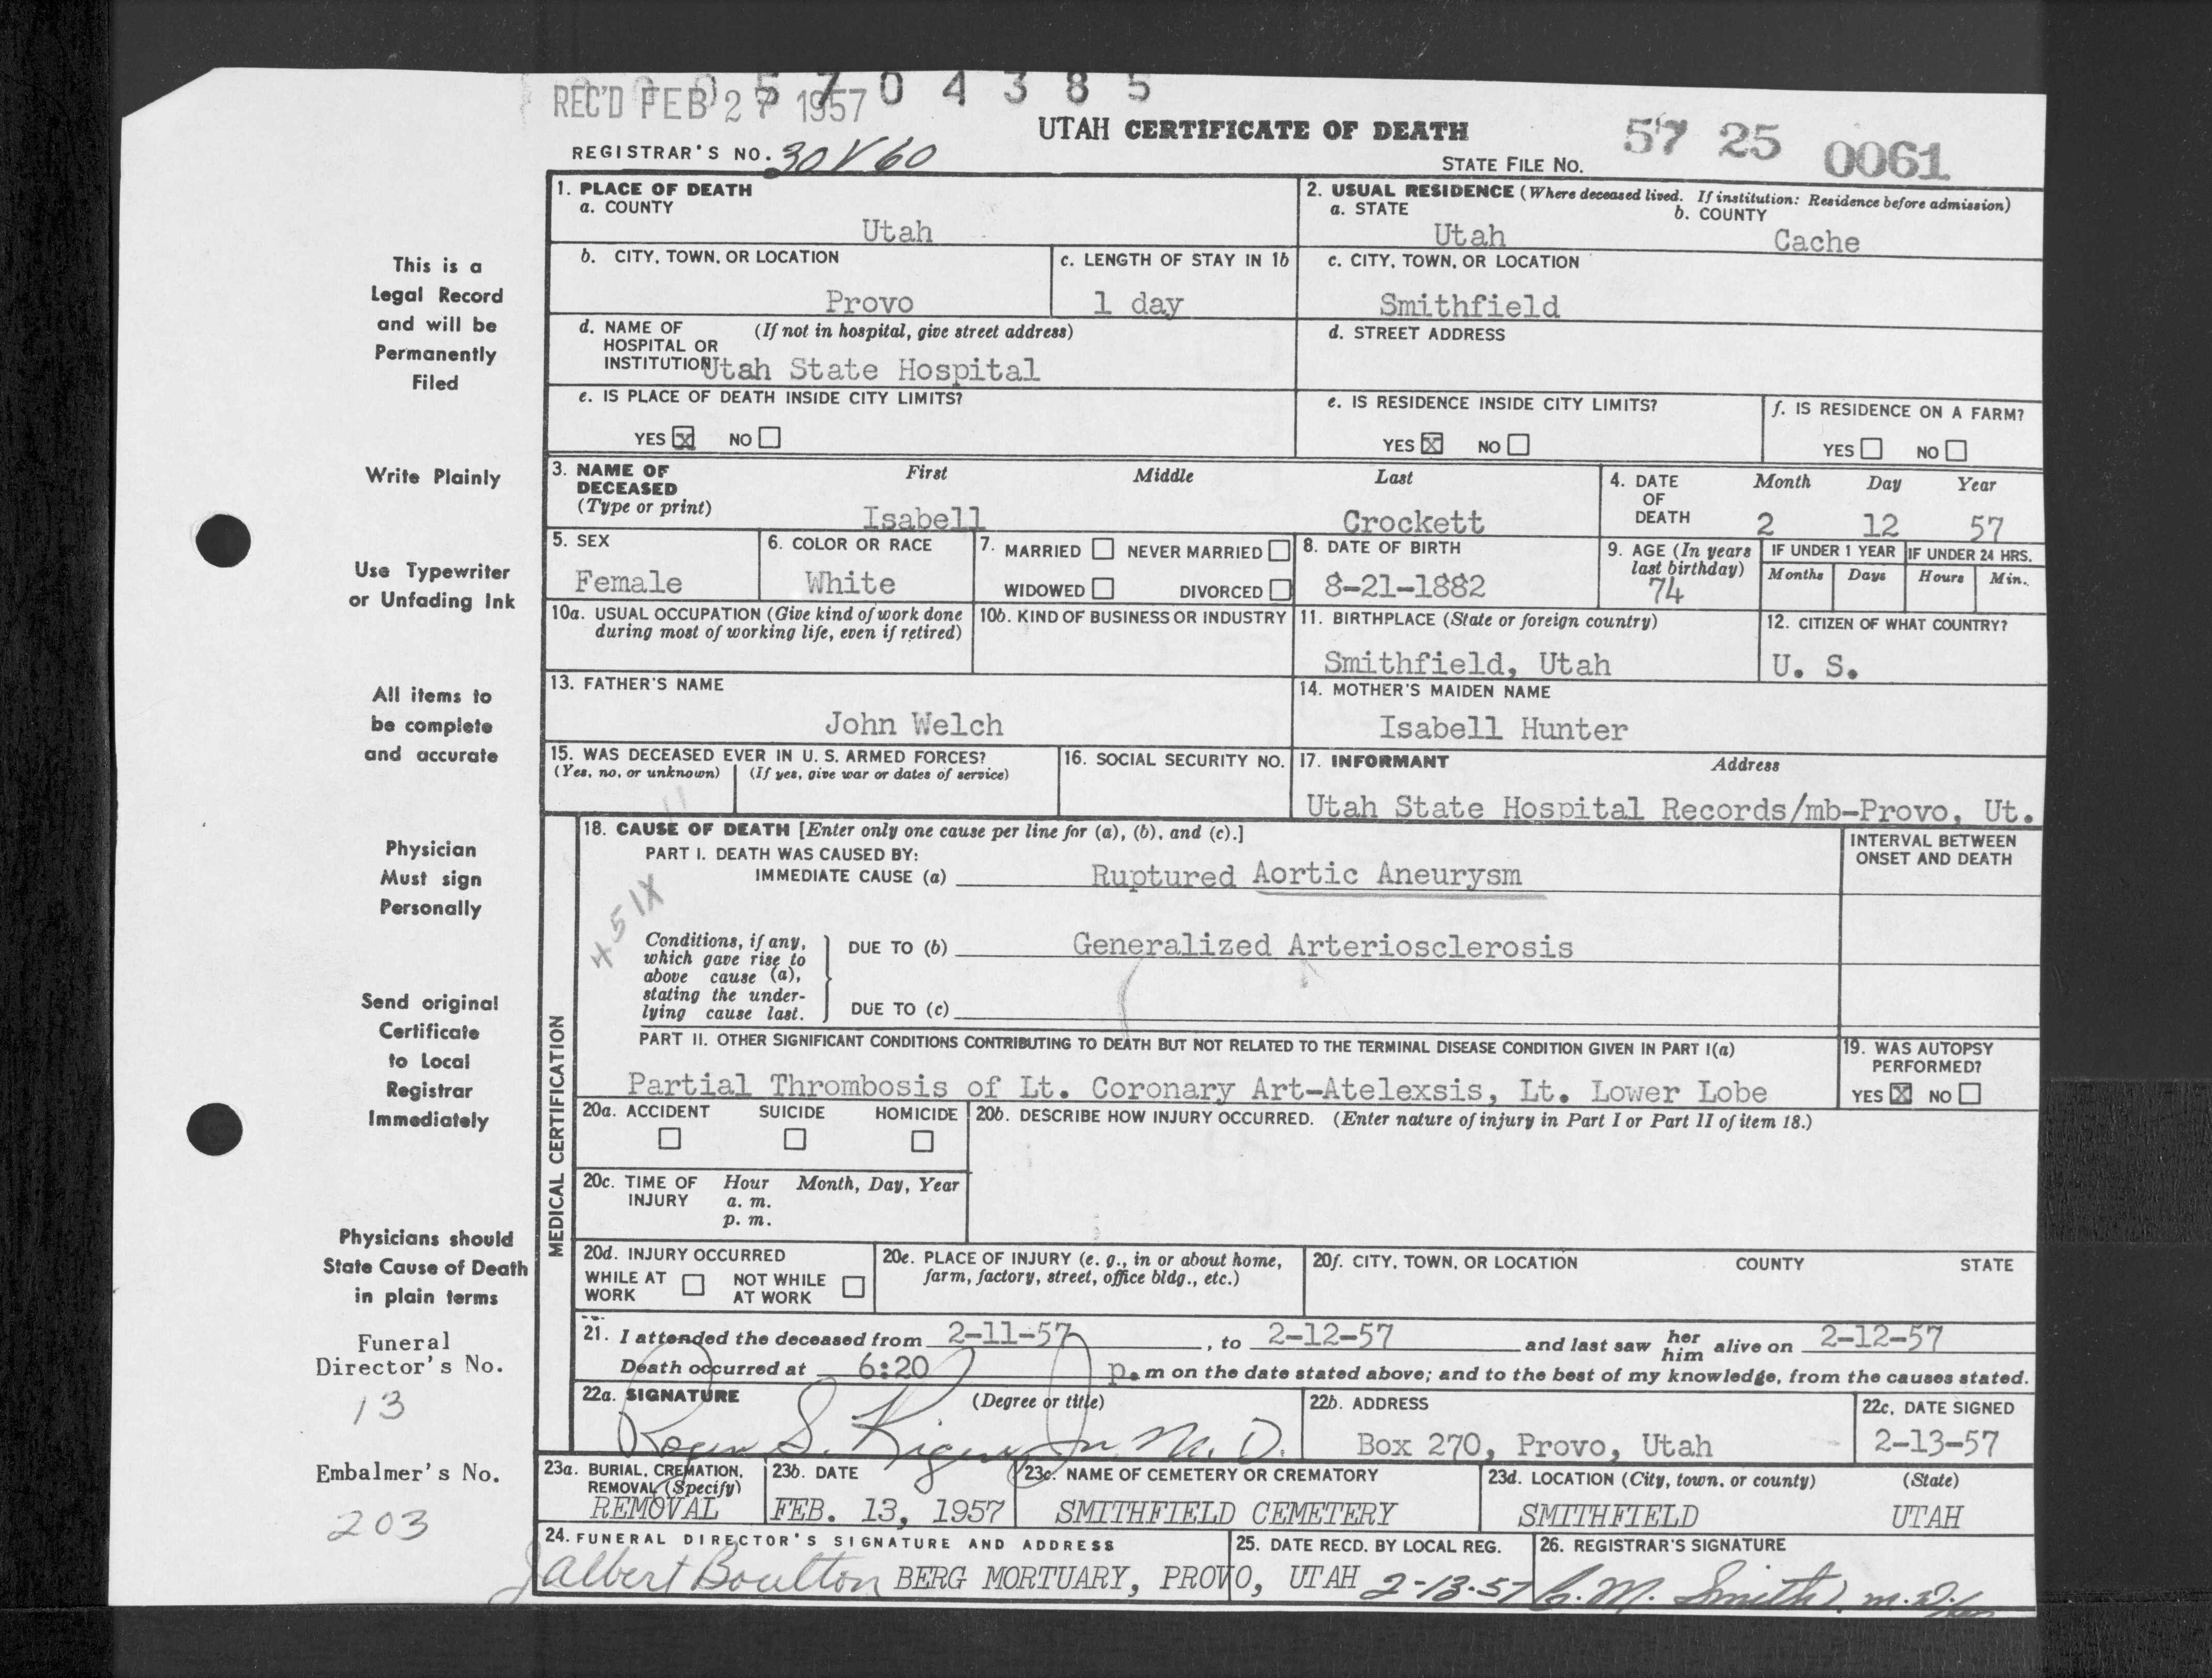 0 4 3 8 5
REC'D FEB 27 1957
UTAH CERTIFICATE OF DEATH
REGISTRAR'S NO. 30V60
STATE FILE NO. 57 25 0061
This is a
Legal Record
and will be
Permanently
Filed
Write Plainly
Use Typewriter
or Unfading Ink
All items to
be complete
and accurate
Physician
Must sign
Personally
Send original
Certificate
to Local
Registrar
Immediately
Physicians should
State Cause of Death
in plain terms
Funeral
Director's No.
13
Embalmer's No.
203
1. PLACE OF DEATH
a. COUNTY
Utah
2. USUAL RESIDENCE (Where deceased lived. If institution: Residence before admission)
a. STATE
b. COUNTY
Utah
Cache
b. CITY, TOWN, OR LOCATION
Provo
c. LENGTH OF STAY IN 1b
1 day
c. CITY, TOWN, OR LOCATION
Smithfield
d. NAME OF (If not in hospital, give street address)
HOSPITAL OR
INSTITUTION Utah State Hospital
d. STREET ADDRESS
e. IS PLACE OF DEATH INSIDE CITY LIMITS?
YES X NO
e. IS RESIDENCE INSIDE CITY LIMITS?
YES X NO
f. IS RESIDENCE ON A FARM?
YES NO
3. NAME OF First Middle Last
DECEASED
(Type or print)
Isabell Crockett
4. DATE Month Day Year
OF
DEATH 2 12 57
5. SEX
Female
6. COLOR OR RACE
White
7. MARRIED NEVER MARRIED
WIDOWED DIVORCED
8. DATE OF BIRTH
8-21-1882
9. AGE (In years
last birthday)
74
IF UNDER 1 YEAR
Months Days
IF UNDER 24 HRS.
Hours Min.
10a. USUAL OCCUPATION (Give kind of work done
during most of working life, even if retired)
10b. KIND OF BUSINESS OR INDUSTRY
11. BIRTHPLACE (State or foreign country)
Smithfield, Utah
12. CITIZEN OF WHAT COUNTRY?
U. S.
13. FATHER'S NAME
John Welch
14. MOTHER'S MAIDEN NAME
Isabell Hunter
15. WAS DECEASED EVER IN U. S. ARMED FORCES?
(Yes, no, or unknown) (If yes, give war or dates of service)
16. SOCIAL SECURITY NO.
17. INFORMANT Address
Utah State Hospital Records/mb-Provo, Ut.
MEDICAL CERTIFICATION
18. CAUSE OF DEATH [Enter only one cause per line for (a), (b), and (c).]
INTERVAL BETWEEN
ONSET AND DEATH
PART I. DEATH WAS CAUSED BY:
IMMEDIATE CAUSE (a) Ruptured Aortic Aneurysm
451X
Conditions, if any,
which gave rise to
above cause (a),
stating the under-
lying cause last.
DUE TO (b) Generalized Arteriosclerosis
DUE TO (c)
PART II. OTHER SIGNIFICANT CONDITIONS CONTRIBUTING TO DEATH BUT NOT RELATED TO THE TERMINAL DISEASE CONDITION GIVEN IN PART I(a)
Partial Thrombosis of Lt. Coronary Art-Atelexsis, Lt. Lower Lobe
19. WAS AUTOPSY
PERFORMED?
YES X NO
20a. ACCIDENT SUICIDE HOMICIDE
20b. DESCRIBE HOW INJURY OCCURRED. (Enter nature of injury in Part I or Part II of item 18.)
20c. TIME OF Hour Month, Day, Year
INJURY a. m.
p. m.
20d. INJURY OCCURRED
WHILE AT NOT WHILE
WORK AT WORK
20e. PLACE OF INJURY (e. g., in or about home,
farm, factory, street, office bldg., etc.)
20f. CITY, TOWN, OR LOCATION COUNTY STATE
21. I attended the deceased from 2-11-57, to 2-12-57 and last saw her him alive on 2-12-57
Death occurred at 6:20 p.m on the date stated above; and to the best of my knowledge, from the causes stated.
22a. SIGNATURE (Degree or title)
Roger S. Jr. M. D.
22b. ADDRESS
Box 270, Provo, Utah
22c. DATE SIGNED
2-13-57
23a. BURIAL, CREMATION,
REMOVAL (Specify)
REMOVAL
23b. DATE
FEB. 13, 1957
23c. NAME OF CEMETERY OR CREMATORY
SMITHFIELD CEMETERY
23d. LOCATION (City, town, or county) (State)
SMITHFIELD UTAH
24. FUNERAL DIRECTOR'S SIGNATURE AND ADDRESS
Albert Boulton BERG MORTUARY, PROVO, UTAH
25. DATE RECD. BY LOCAL REG.
2-13-57
26. REGISTRAR'S SIGNATURE
C. M. Smith, M.D.